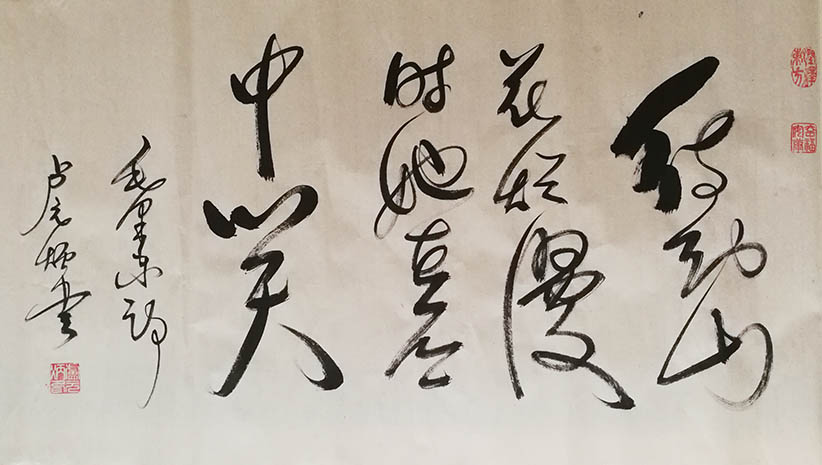 待到山
花烂漫
时她在丛
中笑
毛泽东词
卢书